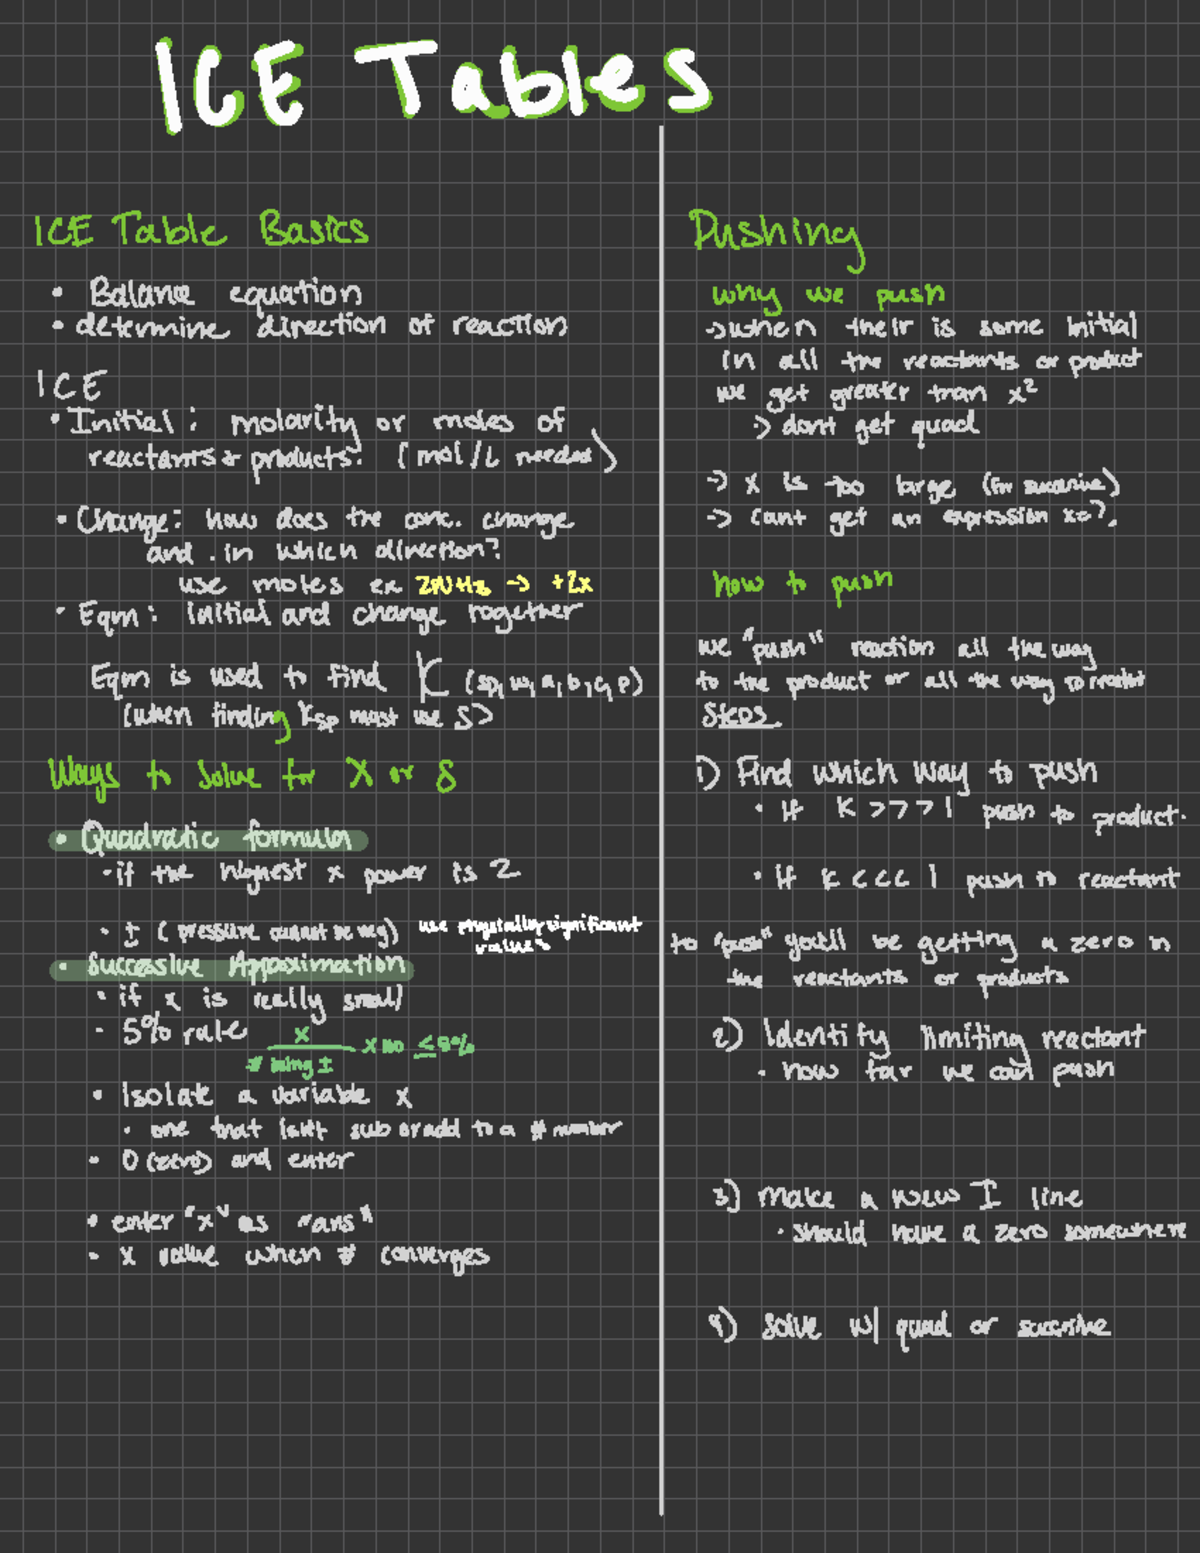 ICE Tables
ICE Table Basics
• Balance equation
• determine direction of reaction
ICE
• Initial: molarity or moles of
reactants & products. (mol/L needed)
• Change: how does the conc. change
and . in which direction?
use moles ex 2NH3 → +2x
• Eqm: initial and change together
Eqm is used to find K (sp, w, a, b, c, p)
(when finding Ksp must use S)
Ways to solve for X or S
• Quadratic formula
• if the highest x power is 2
• ± (pressure cannot be neg) use physically significant
values
• Successive Approximation
• if x is really small
• 5% rule x
x 100 ≤ 5%
# being ±
• Isolate a variable x
• one that isn't sub or add to a # number
• 0 (zero) and enter
• enter "x" as "ans"
• x value when # converges
Pushing
why we push
→ when their is some initial
in all the reactants or product
we get greater than x²
→ dont get quad
→ x is too large (for successive)
→ cant get an expression x=?.
how to push
we "push" reaction all the way
to the product or all the way to reactant
Steps
1) Find which way to push
• If K >>>1 push to product.
• If K <<< 1 push to reactant
to "push" you'll be getting a zero in
the reactants or products
2) Identify limiting reactant
• how far we can push
3) make a new I line
• should have a zero somewhere
4) solve w/ quad or successive